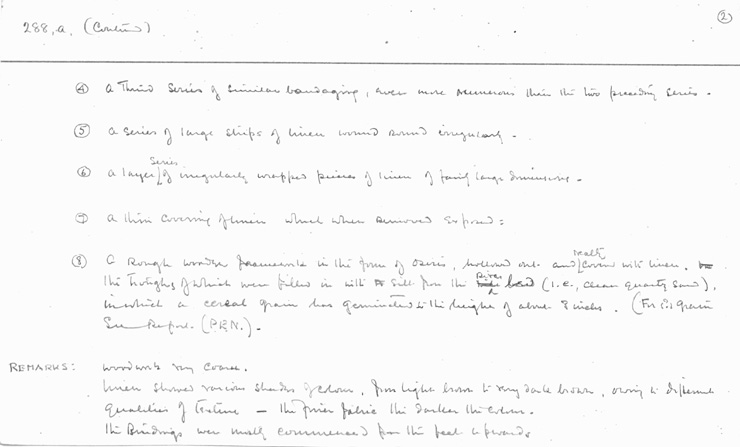 ②
288, a. (Contin)
④ A Third series of similar bandaging, even more numerous than the two preceding series.
⑤ A series of large strips of linen wound round irregularly.
⑥ A layer / series of irregularly wrapped pieces of linen of fairly large dimensions.
⑦ A thin covering of linen which when removed exposed:
⑧ A rough wooden framework in the form of Osiris, hollowed out and neatly covered with linen.
the troughs of which were filled in with silt from the River bed (i.e., clean quartz sand),
in which a cereal grain has germinated to the height of about 8 inches. (For grain
See Report. (P.E.N.).
REMARKS: Woodwork very coarse.
Linen showed various shades of colour, from light brown to very dark brown, owing to different
qualities of texture — the finer fabric the darker the colour.
The Bindings were mostly commenced from the feet upwards